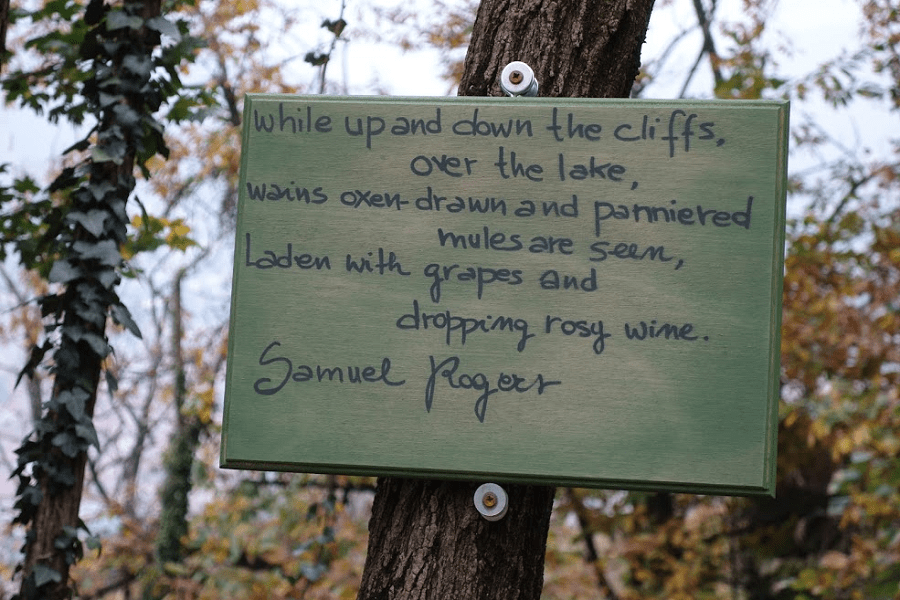 While up and down the cliffs,
over the lake,
wains oxen-drawn and panniered
mules are seen,
Laden with grapes and
dropping rosy wine.
Samuel Rogers